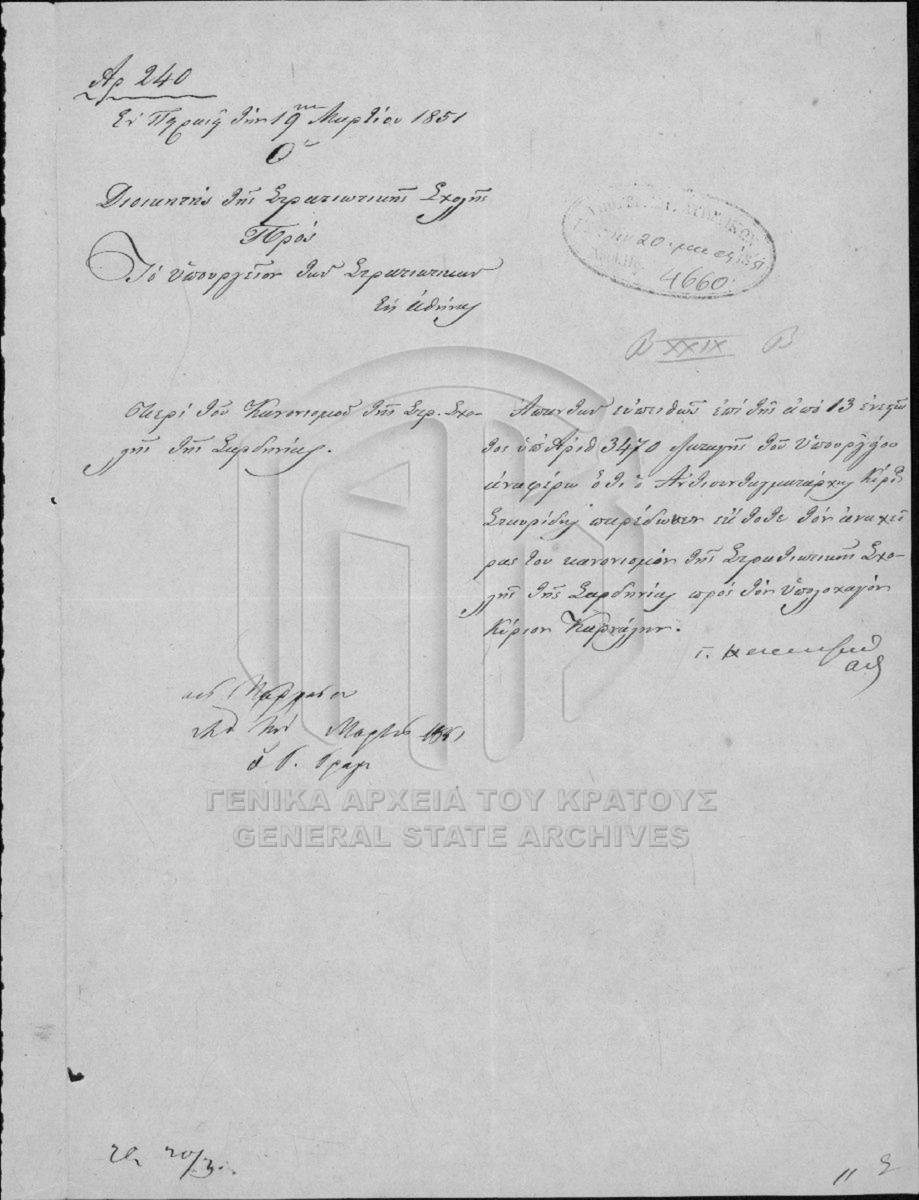 Αρ 240
Ἐν Πειραιεῖ τὴν 19 Μαρτίου 1851
Ὁ
Διοικητὴς τῆς Στρατιωτικῆς Σχολῆς
Πρὸς
Τὸ Ὑπουργεῖον τῶν Στρατιωτικῶν
Εἰς Ἀθήνας
20 1851
4660
B XXIX B
Περὶ τοῦ Κανονισμοῦ τῆς Στρ. Σχο-
λῆς τῆς Σαρδηνίας.
Ἀπαντῶν εὐπειθῶς ἐπὶ τῆς ἀπὸ 13 ἐνεστῶ
τος ὑπ' Ἀριθ 3470 διαταγῆς τοῦ Ὑπουργείου
ἀναφέρω ὅτι ὁ Ἀντισυνταγματάρχης Κύριος
Σταυρίδης παρέδωκεν τὸν ἀνὰ χεῖ
ρας του κανονισμὸν τῆς Στρατιωτικῆς Σχο-
λῆς τῆς Σαρδηνίας πρὸς τὸν Ὑπολοχαγὸν
Κύριον Καρνάλην.
Μαρτίου 1851
ΓΕΝΙΚΑ ΑΡΧΕΙΑ ΤΟΥ ΚΡΑΤΟΥΣ
GENERAL STATE ARCHIVES
20/3